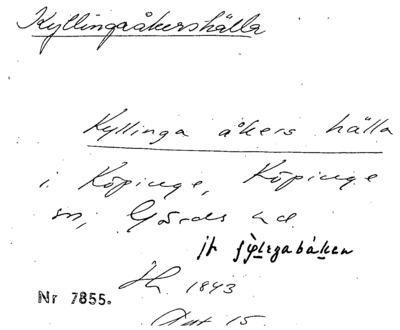 Kyllingaåkershälla
Kyllinga åkers hälla
i Köpinge, Köpinge
sn, Gärds hd
jfr
Nr 7855.
1843
15